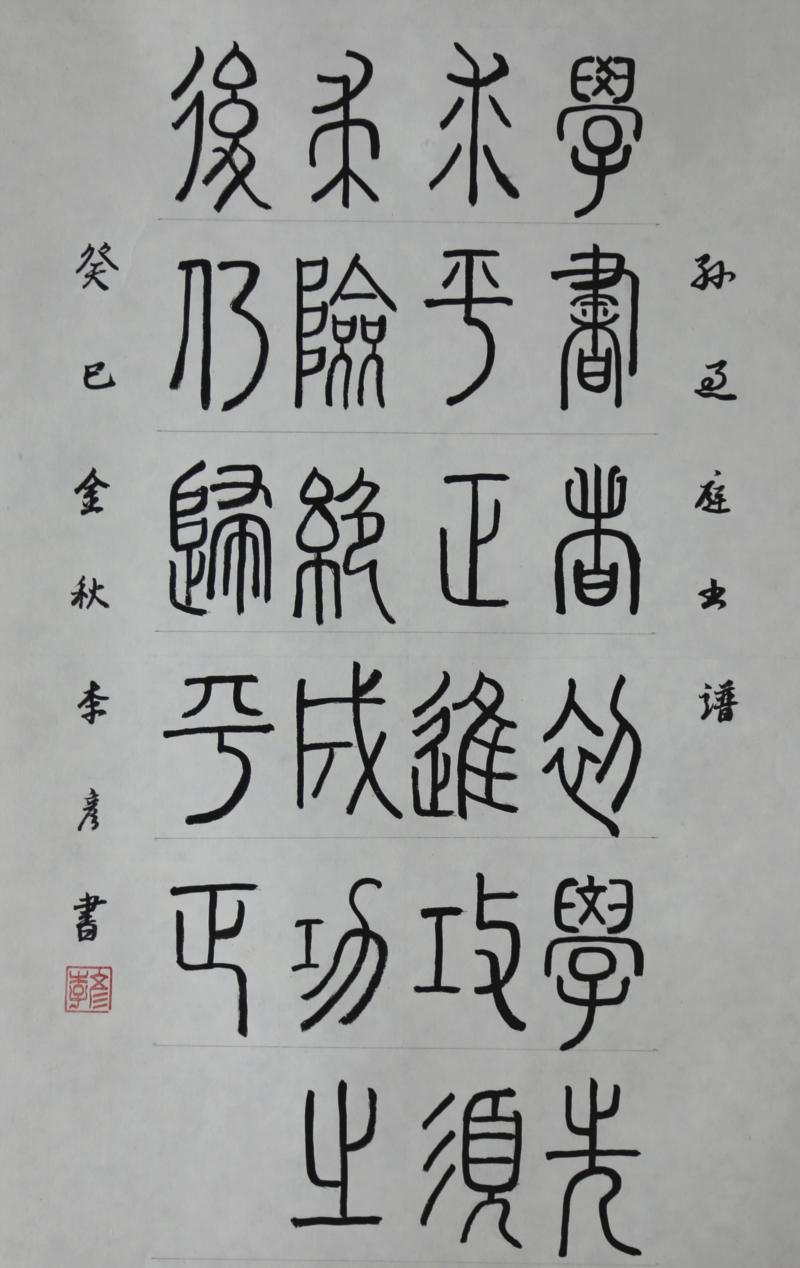 孙过庭书谱
學書者初學先
求平正進攻須
求險絕成功之
後仍歸平正
癸巳金秋李彦書
李彦